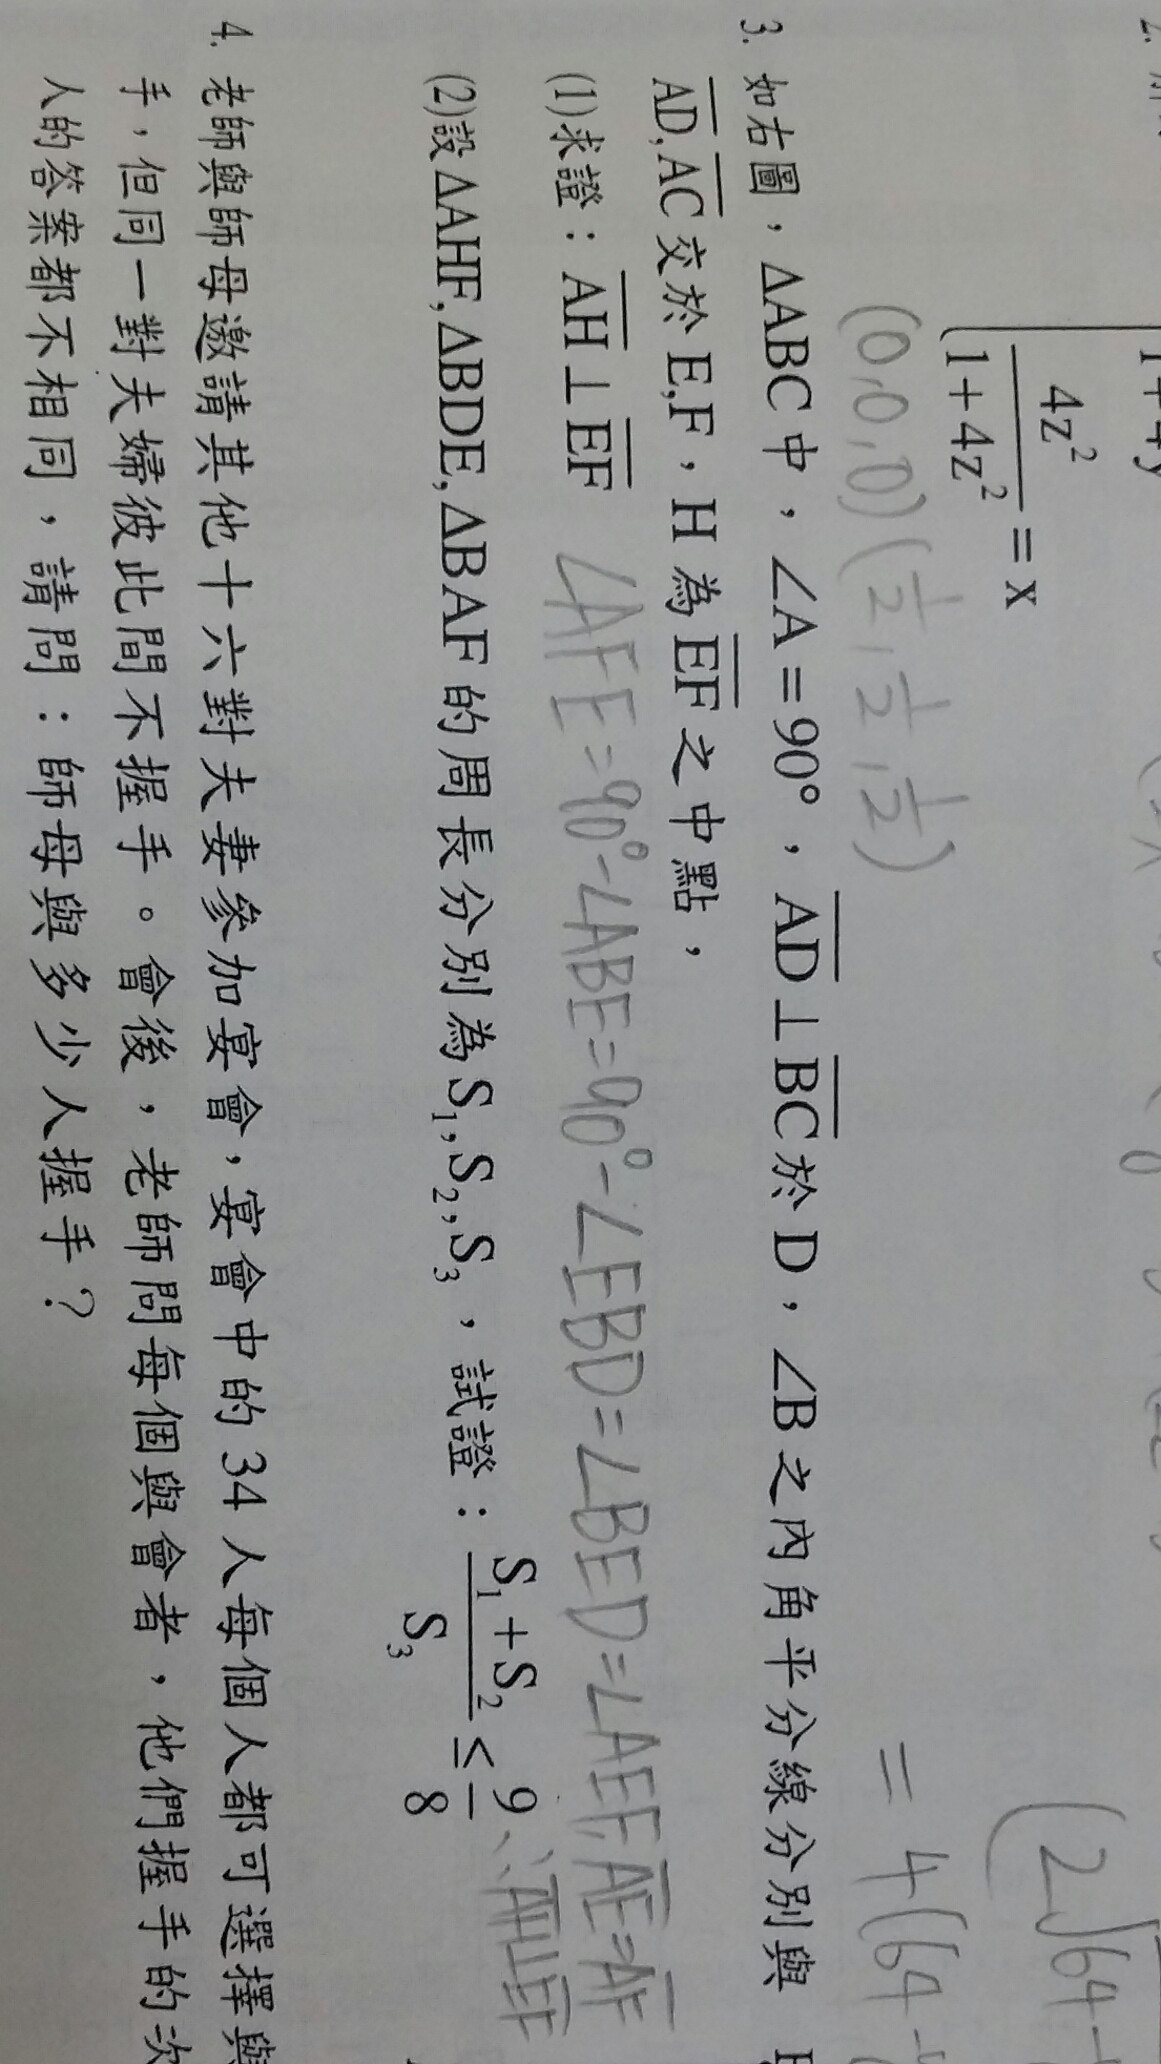 2.
1+4y
4z²
———— = x
1+4z²
(0,0,0) (1/2, 1/2, 1/2)
(2√64-
= 4(64-
3. 如右圖，ΔABC中，∠A=90°，A̅D̅⊥B̅C̅於D，∠B之內角平分線分別與
A̅D̅,A̅C̅交於E,F，H為E̅F̅之中點，
(1)求證：A̅H̅⊥E̅F̅
∠AFE=90°-∠ABE=90°-∠EBD=∠BED=∠AEF, A̅E̅=A̅F̅
∴A̅H̅⊥E̅F̅
(2)設ΔAHF,ΔBDE,ΔBAF的周長分別為S₁,S₂,S₃，試證：(S₁+S₂)/S₃ ≤ 9/8
4. 老師與師母邀請其他十六對夫妻參加宴會，宴會中的34人每個人都可選擇與
手，但同一對夫婦彼此間不握手。會後，老師問每個與會者，他們握手的次
人的答案都不相同，請問：師母與多少人握手？